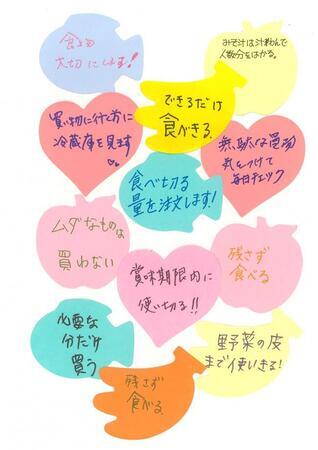 食べ物
大切にします!
みそ汁は汁わんで
人数分をはかる。
できるだけ
食べきる
買い物に行く前に
冷蔵庫を見ます
無駄な買物
気をつけて
毎日チェック
食べ切る
量を注文します!
ムダなものは
買わない
残さず
食べる
賞味期限内に
使い切る!!
必要な
分だけ
買う
野菜の皮
まで使いきる!
残さず
食べる